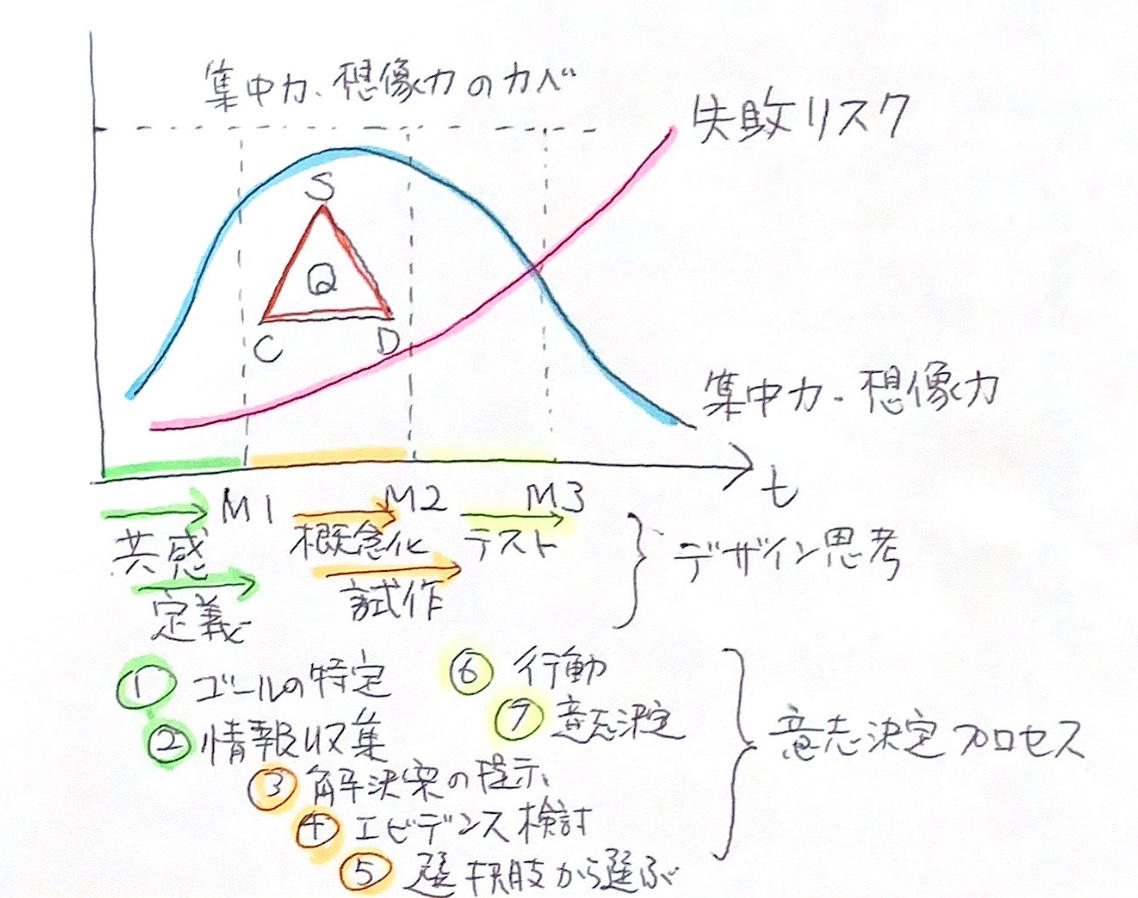 集中力、想像力のカベ
失敗リスク
S
Q
C
D
集中力・想像力
t
M1
M2
M3
共感
概念化
テスト
定義
試作
デザイン思考
① ゴールの特定
② 情報収集
③ 解決案の提示
④ エビデンス検討
⑤ 選択肢から選ぶ
⑥ 行動
⑦ 意志決定
意志決定プロセス